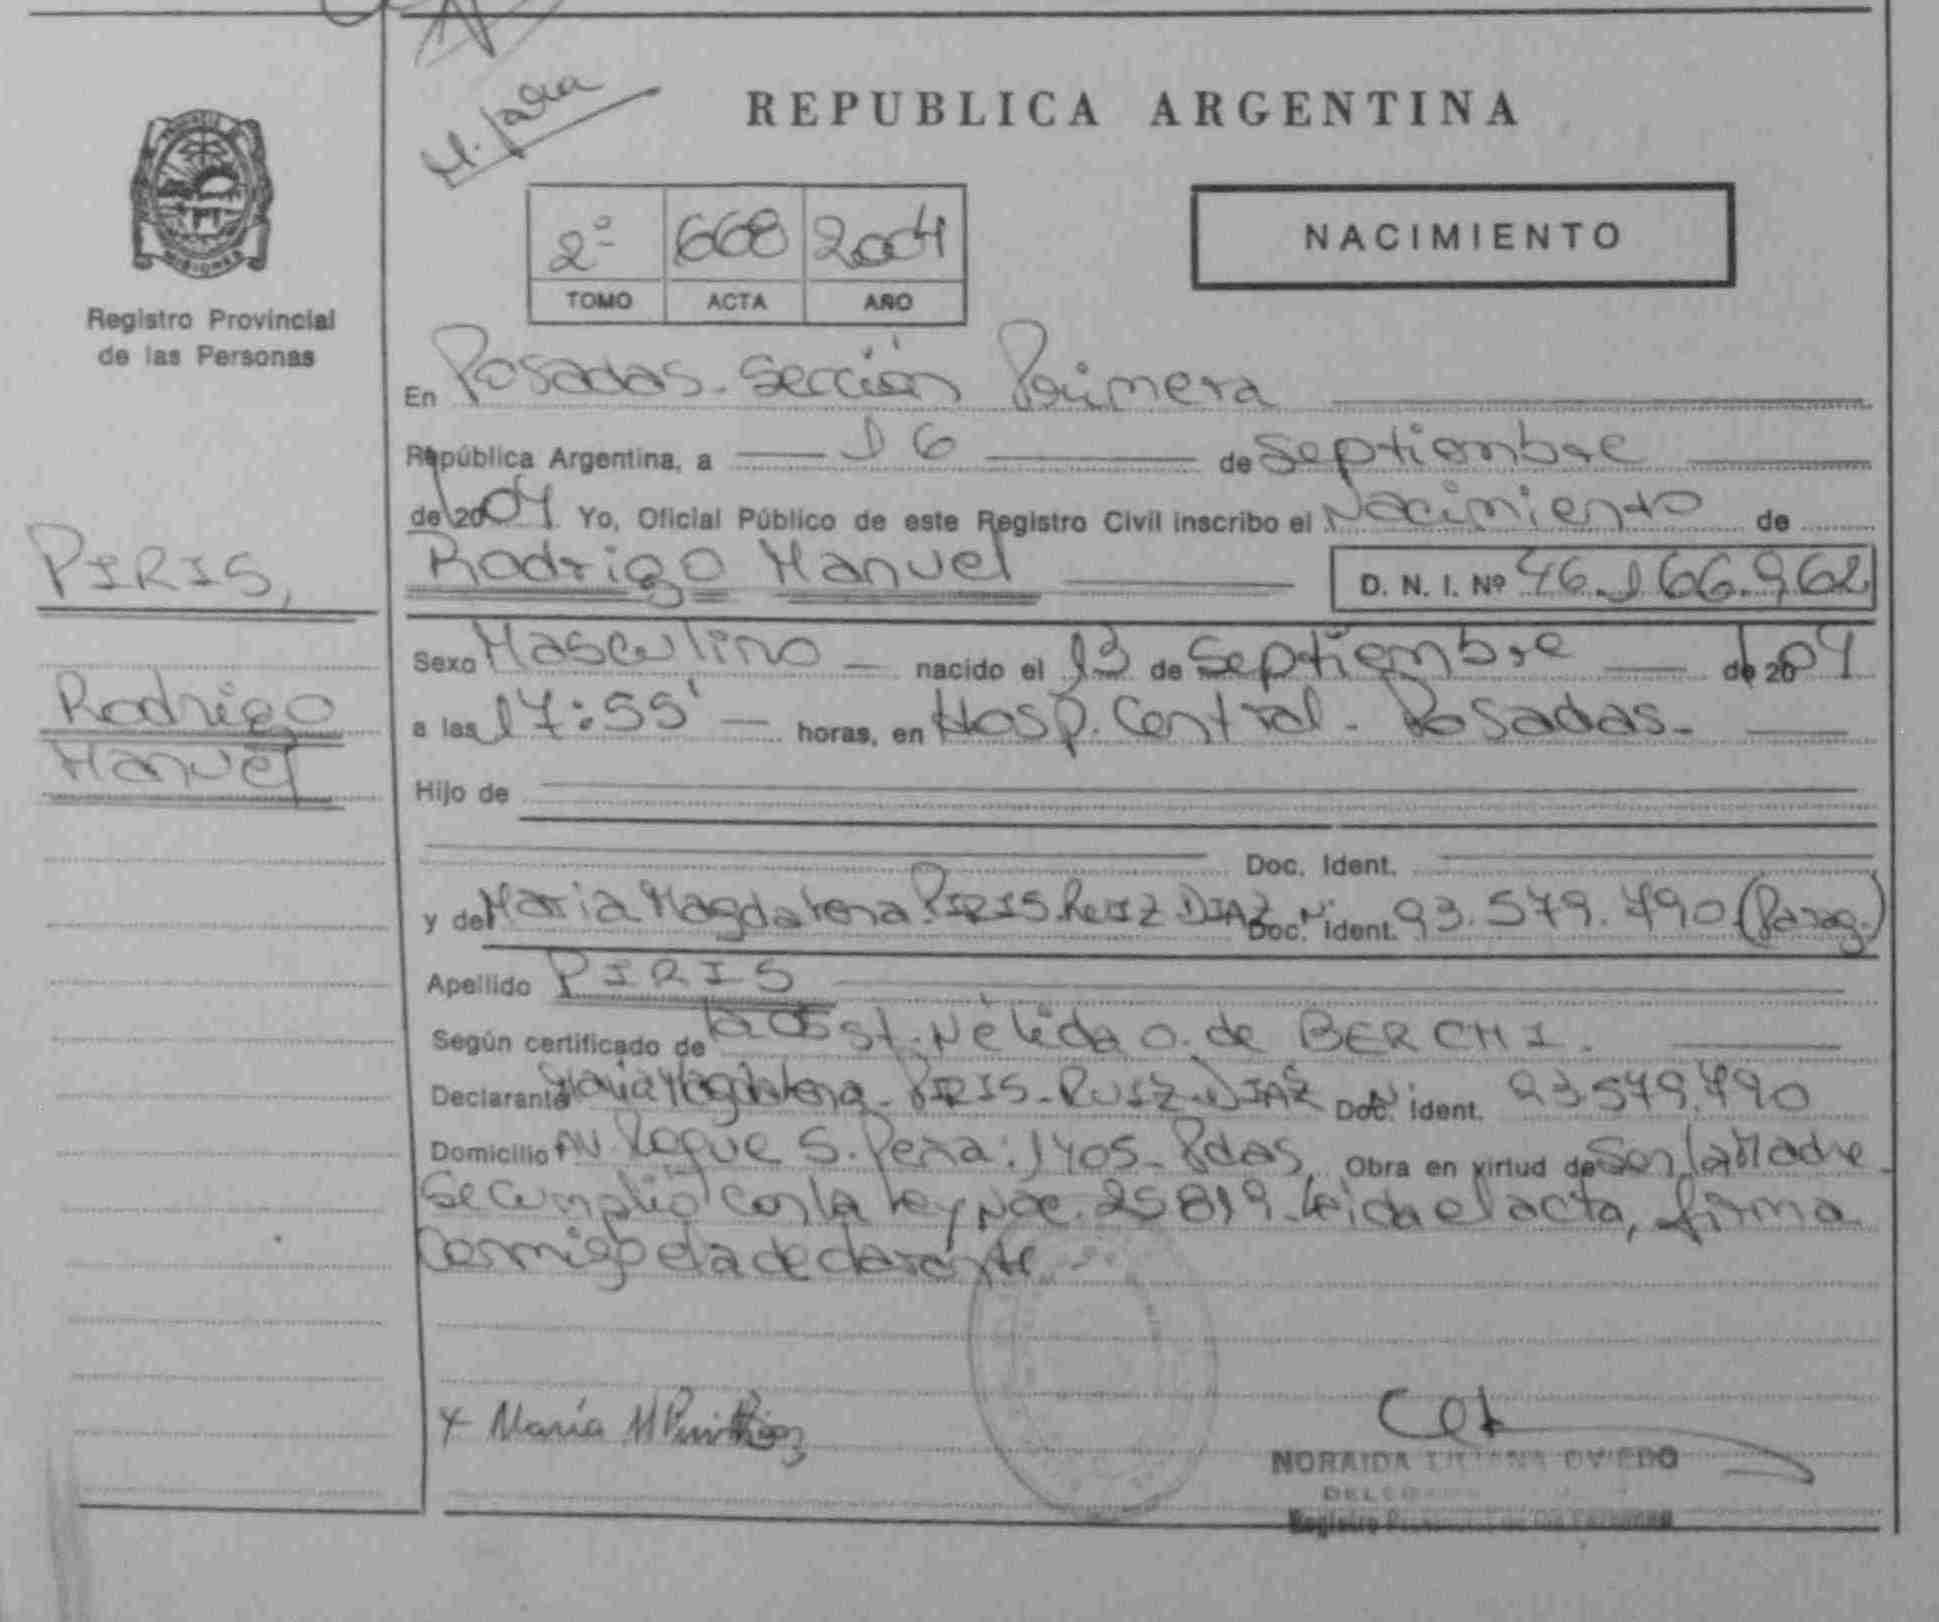 REPUBLICA ARGENTINA
MISIONES
Registro Provincial
de las Personas
2º 668 2004
TOMO ACTA AÑO
NACIMIENTO
En Posadas - Sección Primera
República Argentina, a 16 de Septiembre
de 2004 Yo, Oficial Público de este Registro Civil inscribo el Nacimiento de
PIRIS,
Rodrigo Manuel D. N. I. Nº 46.166.962
Sexo Masculino nacido el 13 de Septiembre de 2004
Rodrigo
Manuel
a las 17:55' horas, en Hosp. Central - Posadas -
Hijo de
Doc. Ident.
y de Maria Magdalena PIRIS RUIZ DIAZ Doc. Ident. 93.579.790 (Parag.)
Apellido PIRIS
Según certificado de Obst. Nélida O. de BERCHI.
Declarante Maria Magdalena - PIRIS - RUIZ DIAZ Doc. Ident. 93.579.790
Domicilio Av Roque S. Pena. 1405 - Pdas, Obra en virtud de Ser la Madre -
Se cumplió con la Ley Nac. 25819. Leida el acta, firma
conmigo la declarante
Maria M
NORAIDA LILIANA OVIEDO
Registro Provincial de las Personas